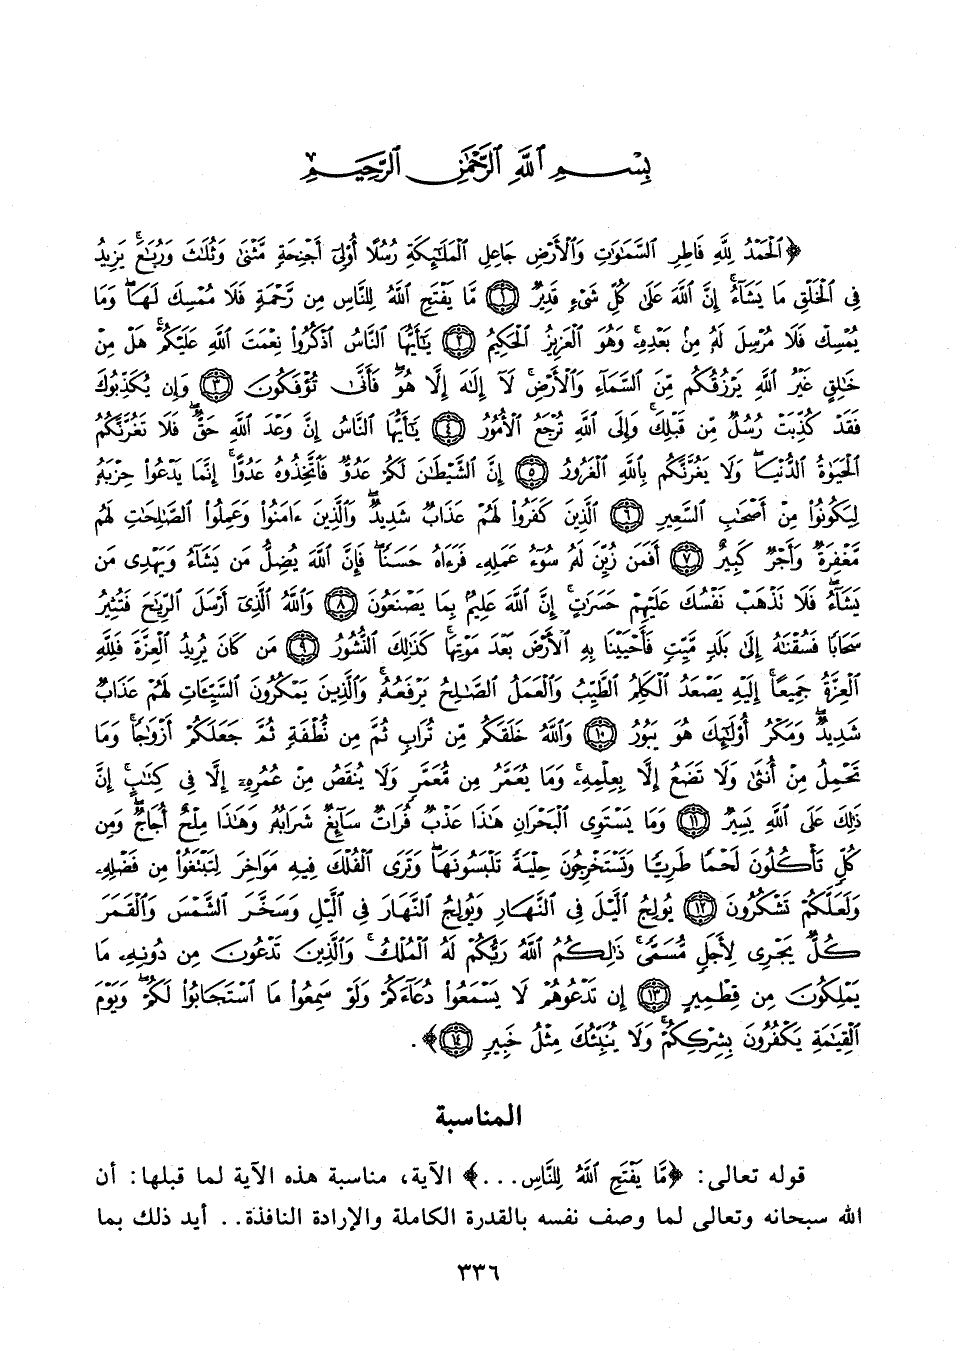 بِسْمِ ٱللَّهِ ٱلرَّحْمَٰنِ ٱلرَّحِيمِ
﴿ٱلْحَمْدُ لِلَّهِ فَاطِرِ ٱلسَّمَٰوَٰتِ وَٱلْأَرْضِ جَاعِلِ ٱلْمَلَٰٓئِكَةِ رُسُلًا أُو۟لِىٓ أَجْنِحَةٍ مَّثْنَىٰ وَثُلَٰثَ وَرُبَٰعَ ۚ يَزِيدُ
فِى ٱلْخَلْقِ مَا يَشَآءُ ۚ إِنَّ ٱللَّهَ عَلَىٰ كُلِّ شَىْءٍ قَدِيرٌ ١ مَّا يَفْتَحِ ٱللَّهُ لِلنَّاسِ مِن رَّحْمَةٍ فَلَا مُمْسِكَ لَهَا ۖ وَمَا
يُمْسِكْ فَلَا مُرْسِلَ لَهُۥ مِنۢ بَعْدِهِۦ ۚ وَهُوَ ٱلْعَزِيزُ ٱلْحَكِيمُ ٢ يَٰٓأَيُّهَا ٱلنَّاسُ ٱذْكُرُوا۟ نِعْمَتَ ٱللَّهِ عَلَيْكُمْ ۚ هَلْ مِنْ
خَٰلِقٍ غَيْرُ ٱللَّهِ يَرْزُقُكُم مِّنَ ٱلسَّمَآءِ وَٱلْأَرْضِ ۚ لَآ إِلَٰهَ إِلَّا هُوَ ۖ فَأَنَّىٰ تُؤْفَكُونَ ٣ وَإِن يُكَذِّبُوكَ
فَقَدْ كُذِّبَتْ رُسُلٌ مِّن قَبْلِكَ ۚ وَإِلَى ٱللَّهِ تُرْجَعُ ٱلْأُمُورُ ٤ يَٰٓأَيُّهَا ٱلنَّاسُ إِنَّ وَعْدَ ٱللَّهِ حَقٌّ ۖ فَلَا تَغُرَّنَّكُمُ
ٱلْحَيَوٰةُ ٱلدُّنْيَا ۖ وَلَا يَغُرَّنَّكُم بِٱللَّهِ ٱلْغَرُورُ ٥ إِنَّ ٱلشَّيْطَٰنَ لَكُمْ عَدُوٌّ فَٱتَّخِذُوهُ عَدُوًّا ۚ إِنَّمَا يَدْعُوا۟ حِزْبَهُۥ
لِيَكُونُوا۟ مِنْ أَصْحَٰبِ ٱلسَّعِيرِ ٦ ٱلَّذِينَ كَفَرُوا۟ لَهُمْ عَذَابٌ شَدِيدٌ ۖ وَٱلَّذِينَ ءَامَنُوا۟ وَعَمِلُوا۟ ٱلصَّٰلِحَٰتِ لَهُم
مَّغْفِرَةٌ وَأَجْرٌ كَبِيرٌ ٧ أَفَمَن زُيِّنَ لَهُۥ سُوٓءُ عَمَلِهِۦ فَرَءَاهُ حَسَنًا ۖ فَإِنَّ ٱللَّهَ يُضِلُّ مَن يَشَآءُ وَيَهْدِى مَن
يَشَآءُ ۖ فَلَا تَذْهَبْ نَفْسُكَ عَلَيْهِمْ حَسَرَٰتٍ ۚ إِنَّ ٱللَّهَ عَلِيمٌۢ بِمَا يَصْنَعُونَ ٨ وَٱللَّهُ ٱلَّذِىٓ أَرْسَلَ ٱلرِّيَٰحَ فَتُثِيرُ
سَحَابًا فَسُقْنَٰهُ إِلَىٰ بَلَدٍ مَّيِّتٍ فَأَحْيَيْنَا بِهِ ٱلْأَرْضَ بَعْدَ مَوْتِهَا ۚ كَذَٰلِكَ ٱلنُّشُورُ ٩ مَن كَانَ يُرِيدُ ٱلْعِزَّةَ فَلِلَّهِ
ٱلْعِزَّةُ جَمِيعًا ۚ إِلَيْهِ يَصْعَدُ ٱلْكَلِمُ ٱلطَّيِّبُ وَٱلْعَمَلُ ٱلصَّٰلِحُ يَرْفَعُهُۥ ۚ وَٱلَّذِينَ يَمْكُرُونَ ٱلسَّيِّـَٔاتِ لَهُمْ عَذَابٌ
شَدِيدٌ ۖ وَمَكْرُ أُو۟لَٰٓئِكَ هُوَ يَبُورُ ١٠ وَٱللَّهُ خَلَقَكُم مِّن تُرَابٍ ثُمَّ مِن نُّطْفَةٍ ثُمَّ جَعَلَكُمْ أَزْوَٰجًا ۚ وَمَا
تَحْمِلُ مِنْ أُنثَىٰ وَلَا تَضَعُ إِلَّا بِعِلْمِهِۦ ۚ وَمَا يُعَمَّرُ مِن مُّعَمَّرٍ وَلَا يُنقَصُ مِنْ عُمُرِهِۦٓ إِلَّا فِى كِتَٰبٍ ۚ إِنَّ
ذَٰلِكَ عَلَى ٱللَّهِ يَسِيرٌ ١١ وَمَا يَسْتَوِى ٱلْبَحْرَانِ هَٰذَا عَذْبٌ فُرَاتٌ سَآئِغٌ شَرَابُهُۥ وَهَٰذَا مِلْحٌ أُجَاجٌ ۖ وَمِن
كُلٍّ تَأْكُلُونَ لَحْمًا طَرِيًّا وَتَسْتَخْرِجُونَ حِلْيَةً تَلْبَسُونَهَا ۖ وَتَرَى ٱلْفُلْكَ فِيهِ مَوَاخِرَ لِتَبْتَغُوا۟ مِن فَضْلِهِۦ
وَلَعَلَّكُمْ تَشْكُرُونَ ١٢ يُولِجُ ٱلَّيْلَ فِى ٱلنَّهَارِ وَيُولِجُ ٱلنَّهَارَ فِى ٱلَّيْلِ وَسَخَّرَ ٱلشَّمْسَ وَٱلْقَمَرَ
كُلٌّ يَجْرِى لِأَجَلٍ مُّسَمًّى ۚ ذَٰلِكُمُ ٱللَّهُ رَبُّكُمْ لَهُ ٱلْمُلْكُ ۚ وَٱلَّذِينَ تَدْعُونَ مِن دُونِهِۦ مَا
يَمْلِكُونَ مِن قِطْمِيرٍ ١٣ إِن تَدْعُوهُمْ لَا يَسْمَعُوا۟ دُعَآءَكُمْ وَلَوْ سَمِعُوا۟ مَا ٱسْتَجَابُوا۟ لَكُمْ ۖ وَيَوْمَ
ٱلْقِيَٰمَةِ يَكْفُرُونَ بِشِرْكِكُمْ ۚ وَلَا يُنَبِّئُكَ مِثْلُ خَبِيرٍ ١٤﴾.
المناسبة
قوله تعالى: ﴿مَّا يَفْتَحِ ٱللَّهُ لِلنَّاسِ...﴾ الآية، مناسبة هذه الآية لما قبلها: أن
الله سبحانه وتعالى لما وصف نفسه بالقدرة الكاملة والإرادة النافذة.. أيد ذلك بما
٣٣٦